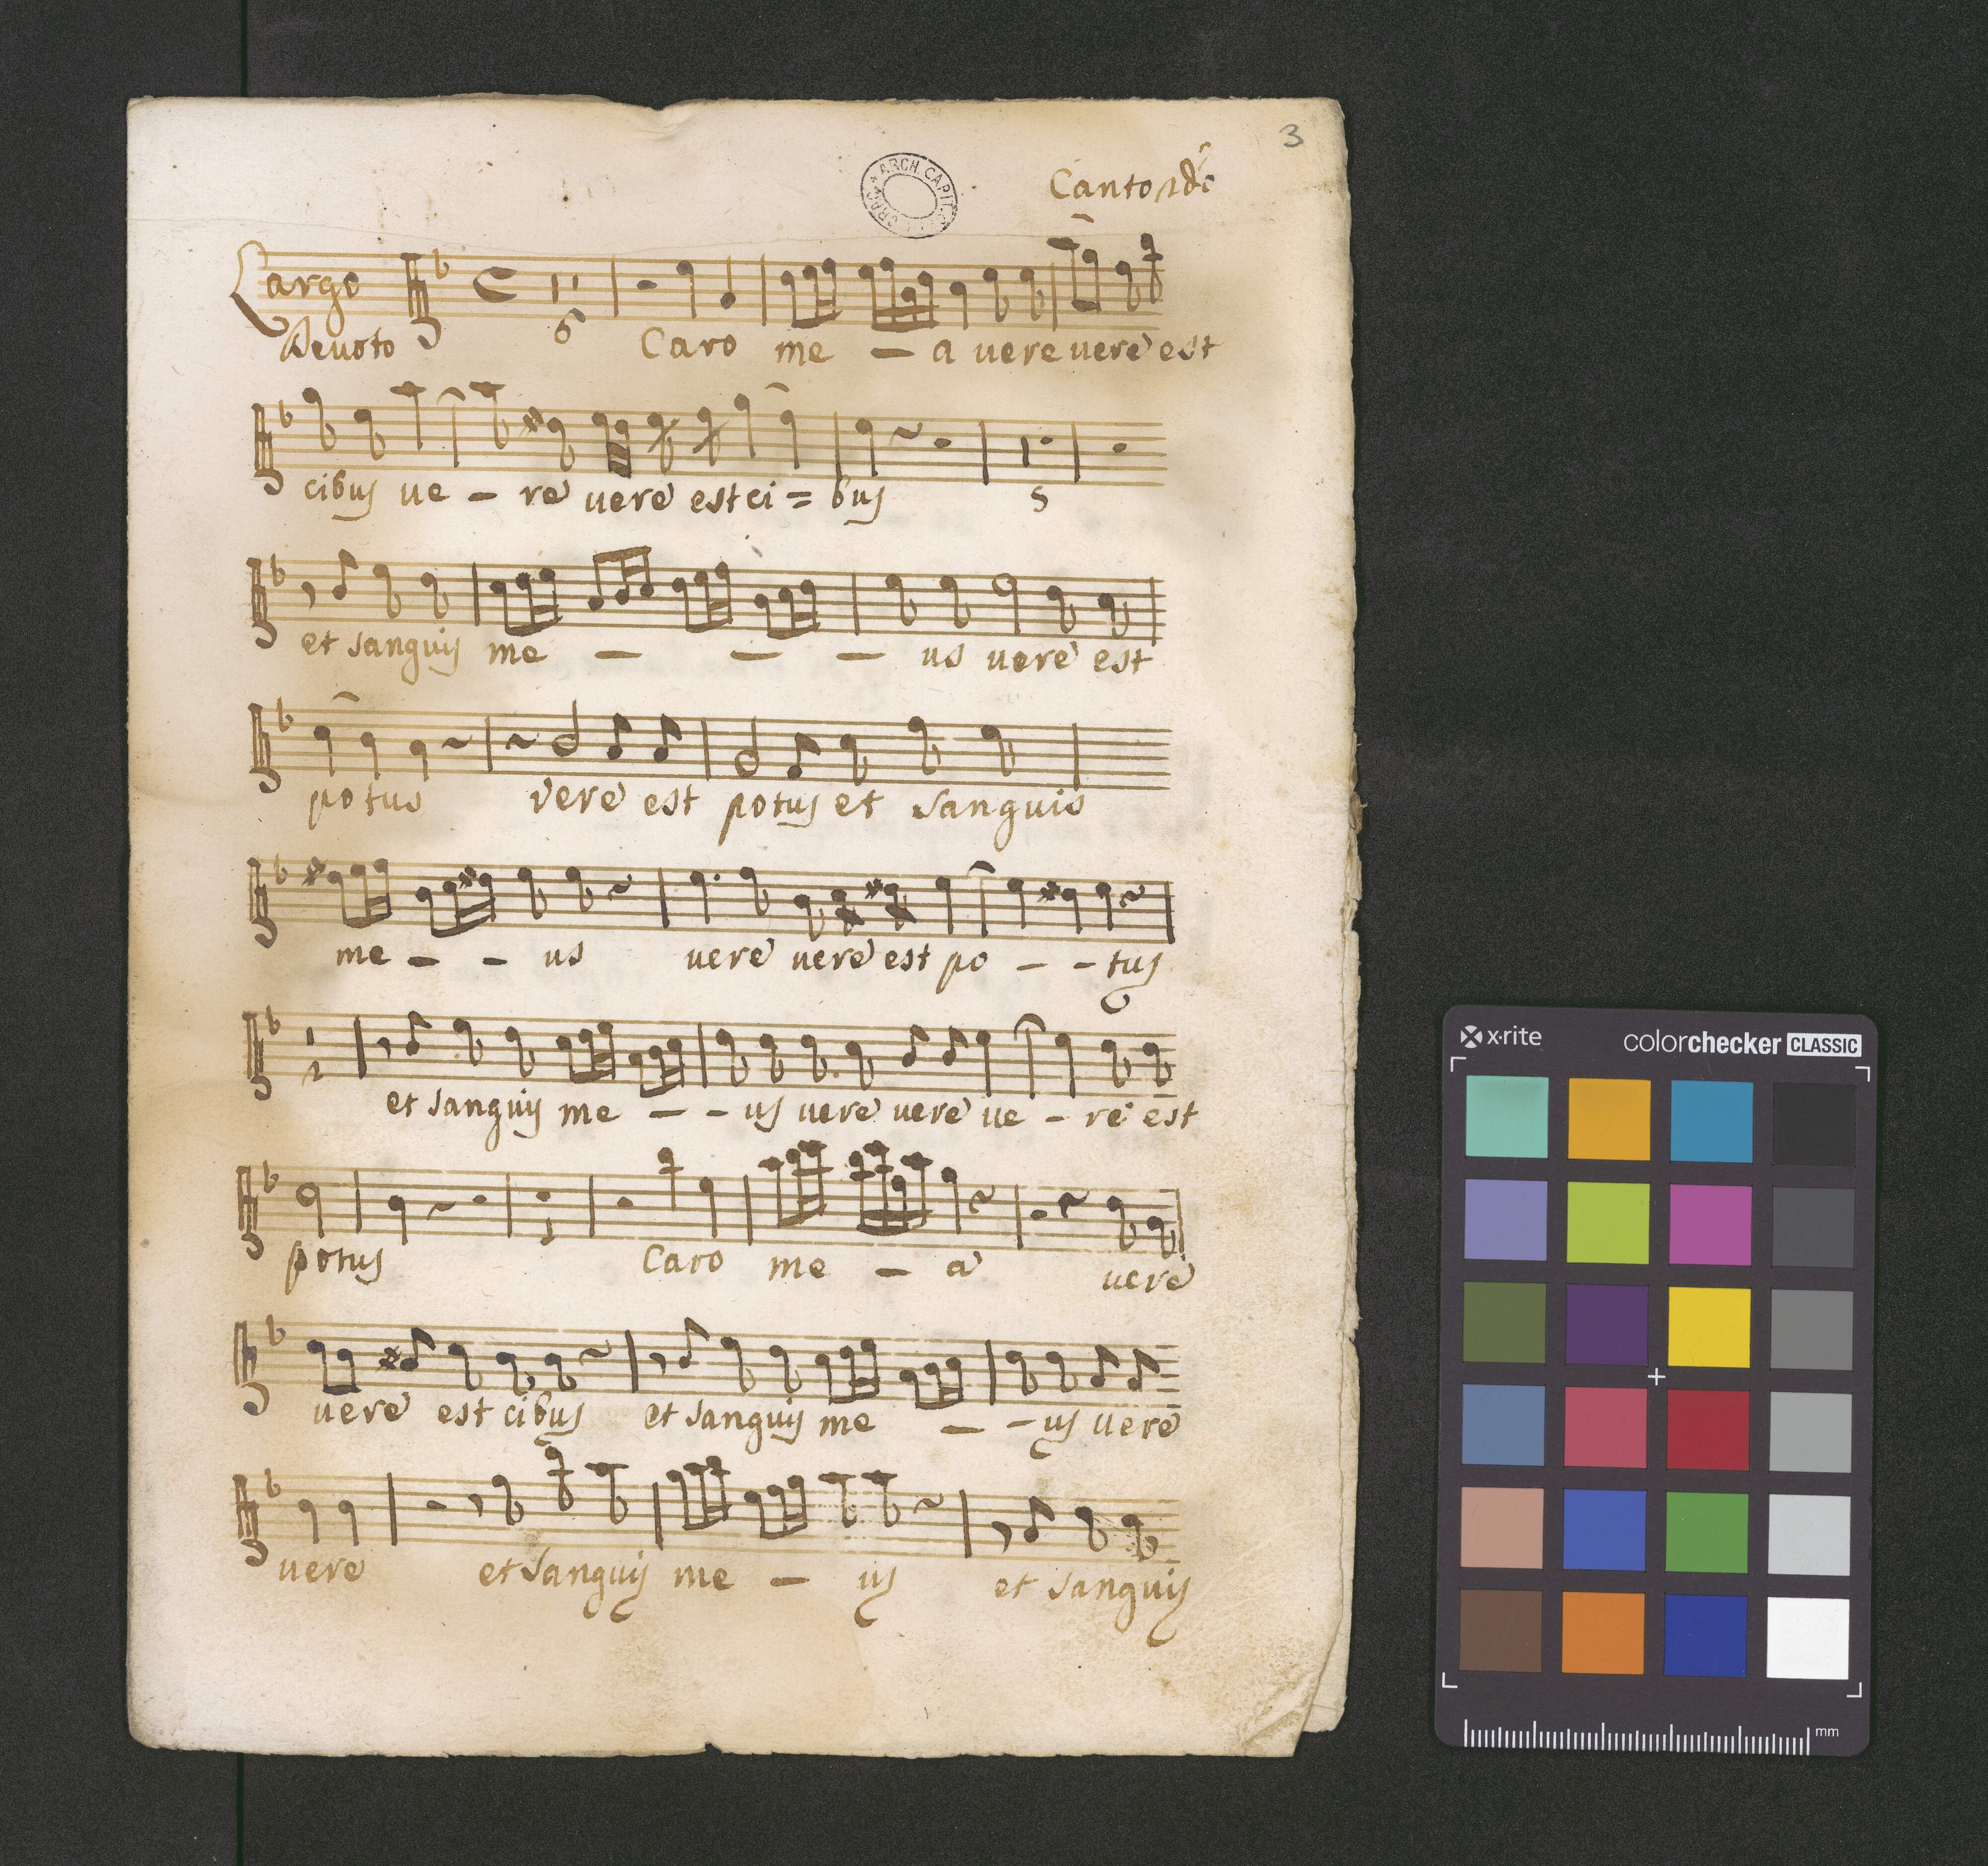 3
ARCH. CAPIT. CRAC.
Canto
Largo
Devoto
6
Caro me — a vere vere est
cibus ve — re vere est ci = bus 5
et sanguis me — — — us vere est
potus vere est potus et sanguis
me — — us vere vere est po — — tus
2
et sanguis me — — us vere vere ve — re est
1
potus Caro me — a vere
vere est cibus et sanguis me — — us vere
vere et sanguis me — us et sanguis
x·rite
colorchecker CLASSIC
mm